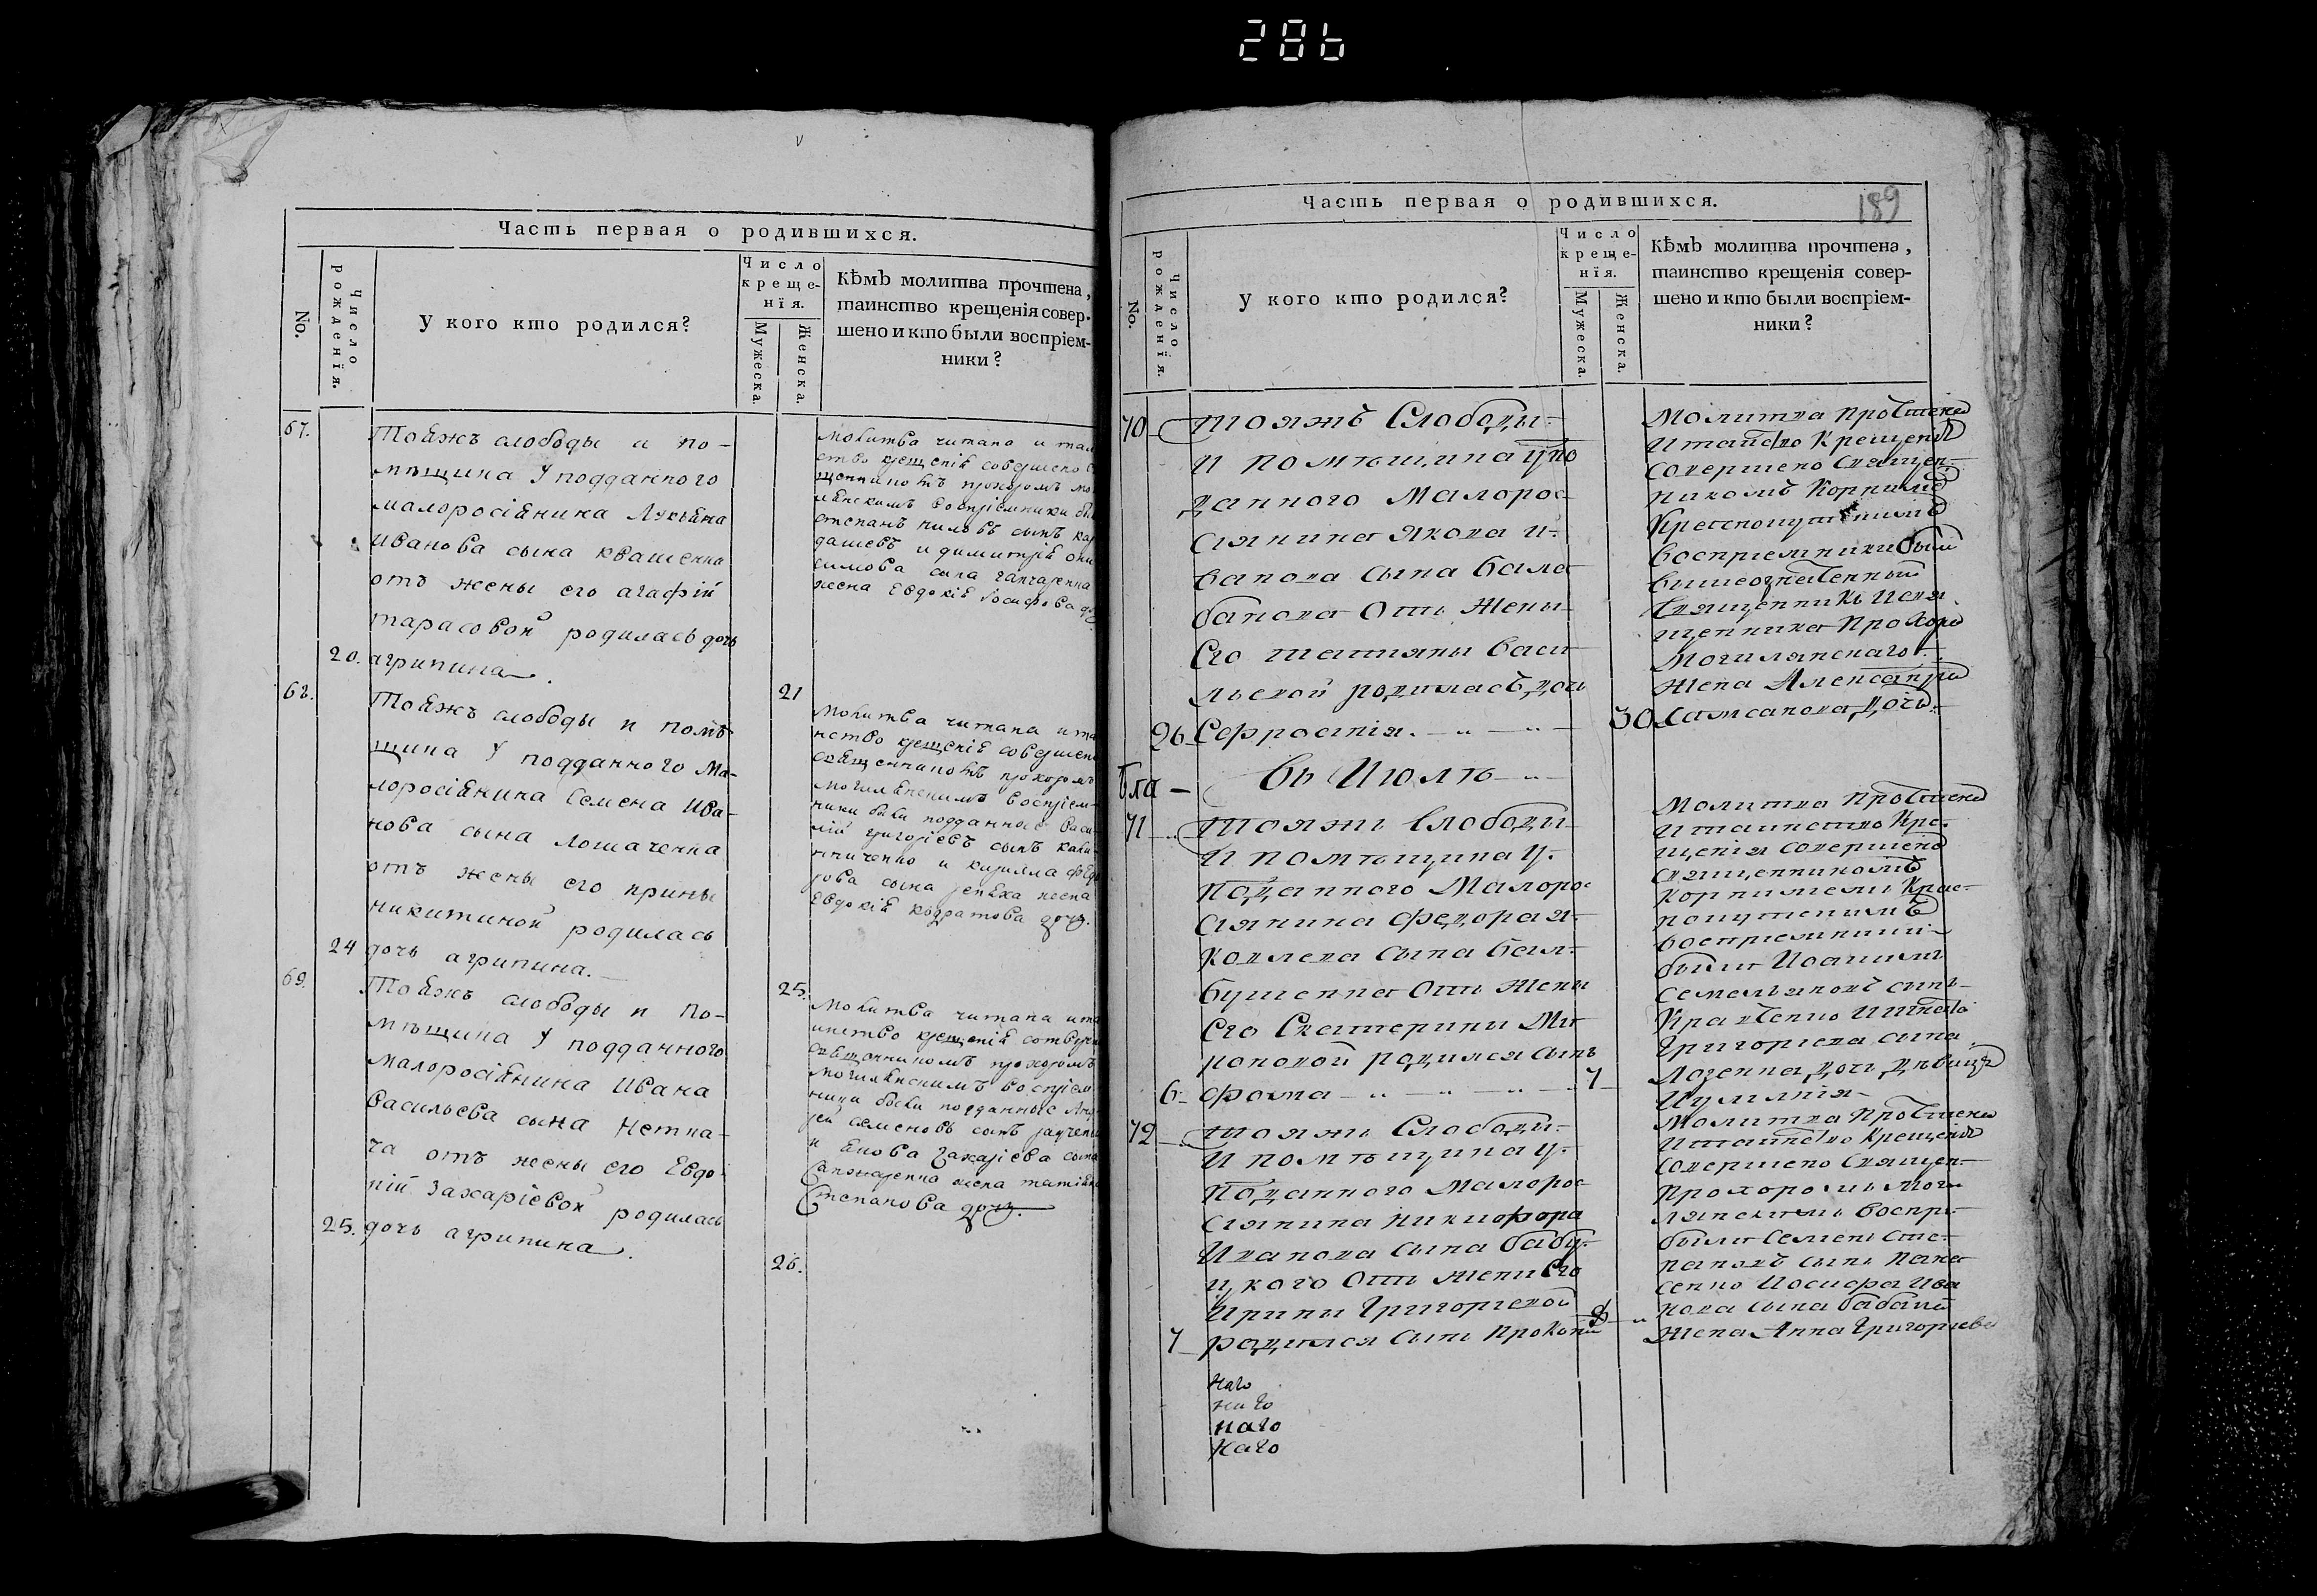 286
Часть первая о родившихся.
No.
Число рожденія.
У кого кто родился?
Число
креще-
нія.
Мужеска.
Женска.
Кѣмъ молитва прочтена,
таинство крещенія совер-
шено и кто были воспріем-
ники?
67.
Тояжъ слободы и по-
мѣщика У подданного
малоросіянина Лукьяна
Иванова сына квашенка
отъ жены его агафіи
тарасовой родилась дочь
20. агрипина. 21
молитва читана и таи
ство крещенія совершено
прохоромъ мо
воспріемники
степанъ сынъ
и димитрія
сына
жена Евдокія
68.
Тояжъ слободы и помѣ
щика У подданного Ма-
лоросіянина Семена Ива-
нова сына Лошаченка
отъ жены его ирины
никитиной родилась
24 дочь агрипина. 25.
Молитва читана и та
нство крещенія совершено
священникомъ прохоромъ
могилянскимъ воспріем-
ники были подданные Васи-
лій григоріевъ сынъ
и кирилла
сына жена
Евдокія дочь.
69.
Тояжъ слободы и По-
мѣщика У подданного
малоросіянина Ивана
Васильева сына Нетка-
ча отъ жены его Евдо-
кіи Захаріевой родилась
25. дочь агрипина. 26.
Молитва читана и та
инство крещенія
священникомъ прохоромъ
могилянскимъ воспріем
ники были подданные Анд
рей семеновъ сынъ
и Захаріева сына
жена татіана
Степанова дочь.
Часть первая о родившихся.
189
No.
Число рожденія.
У кого кто родился?
Число
креще-
нія.
Мужеска.
Женска.
Кѣмъ молитва прочтена,
таинство крещенія совер-
шено и кто были воспріем-
ники?
70 тояжъ Слободы
И помѣщика упо
данного Малорос
сиянина Якова И-
ванова сына Бала
банова Отъ Жены
Его татияны Васи
льевой родиласъ дочь
26 Ефросинія. 30
Молитва Прочтена
И таинство Крещенія
совершено Священ-
никомъ Корнилиемъ
Краснокутскимъ
восприемники были
вышеозначенный
Священникъ И свя
щенника Прохора
Могилянскаго
жена Александра
Самсонова дочь
Въ Июлѣ
71 тояжъ Слободы
И помѣщика У
Поданного Малорос
сиянина Федора Я-
ковлева сына Бал-
бушенка Отъ Жены
Его Екатерины Ми
роновой родился сынъ
6 Фома 7
Молитва Прочтена
И таинство Кре-
щения совершено
священникомъ
Корнилиемъ Крас-
нокутскимъ
восприемники
были Иоакимъ
Емельяновъ сынъ
Кравченко И
Григориева сына
дочь дѣвица
Иулиания
72 тояжъ Слободы
И помѣщика У
Поданного Малорос
сиянина Никифора
Иванова сына Бабу-
цкого Отъ жены Его
Ирины Григориевой
7 родился сынъ Прокопий 8
Молитва Прочтена
И таинство Крещения
совершено Священ-
Прохоромъ Моги
лянскимъ Воспри-
были Семенъ Сте-
пановъ сынъ Пана
сенко Иосифа Ива
нова сына
жена Анна Григориева
наго
наго
наго
наго